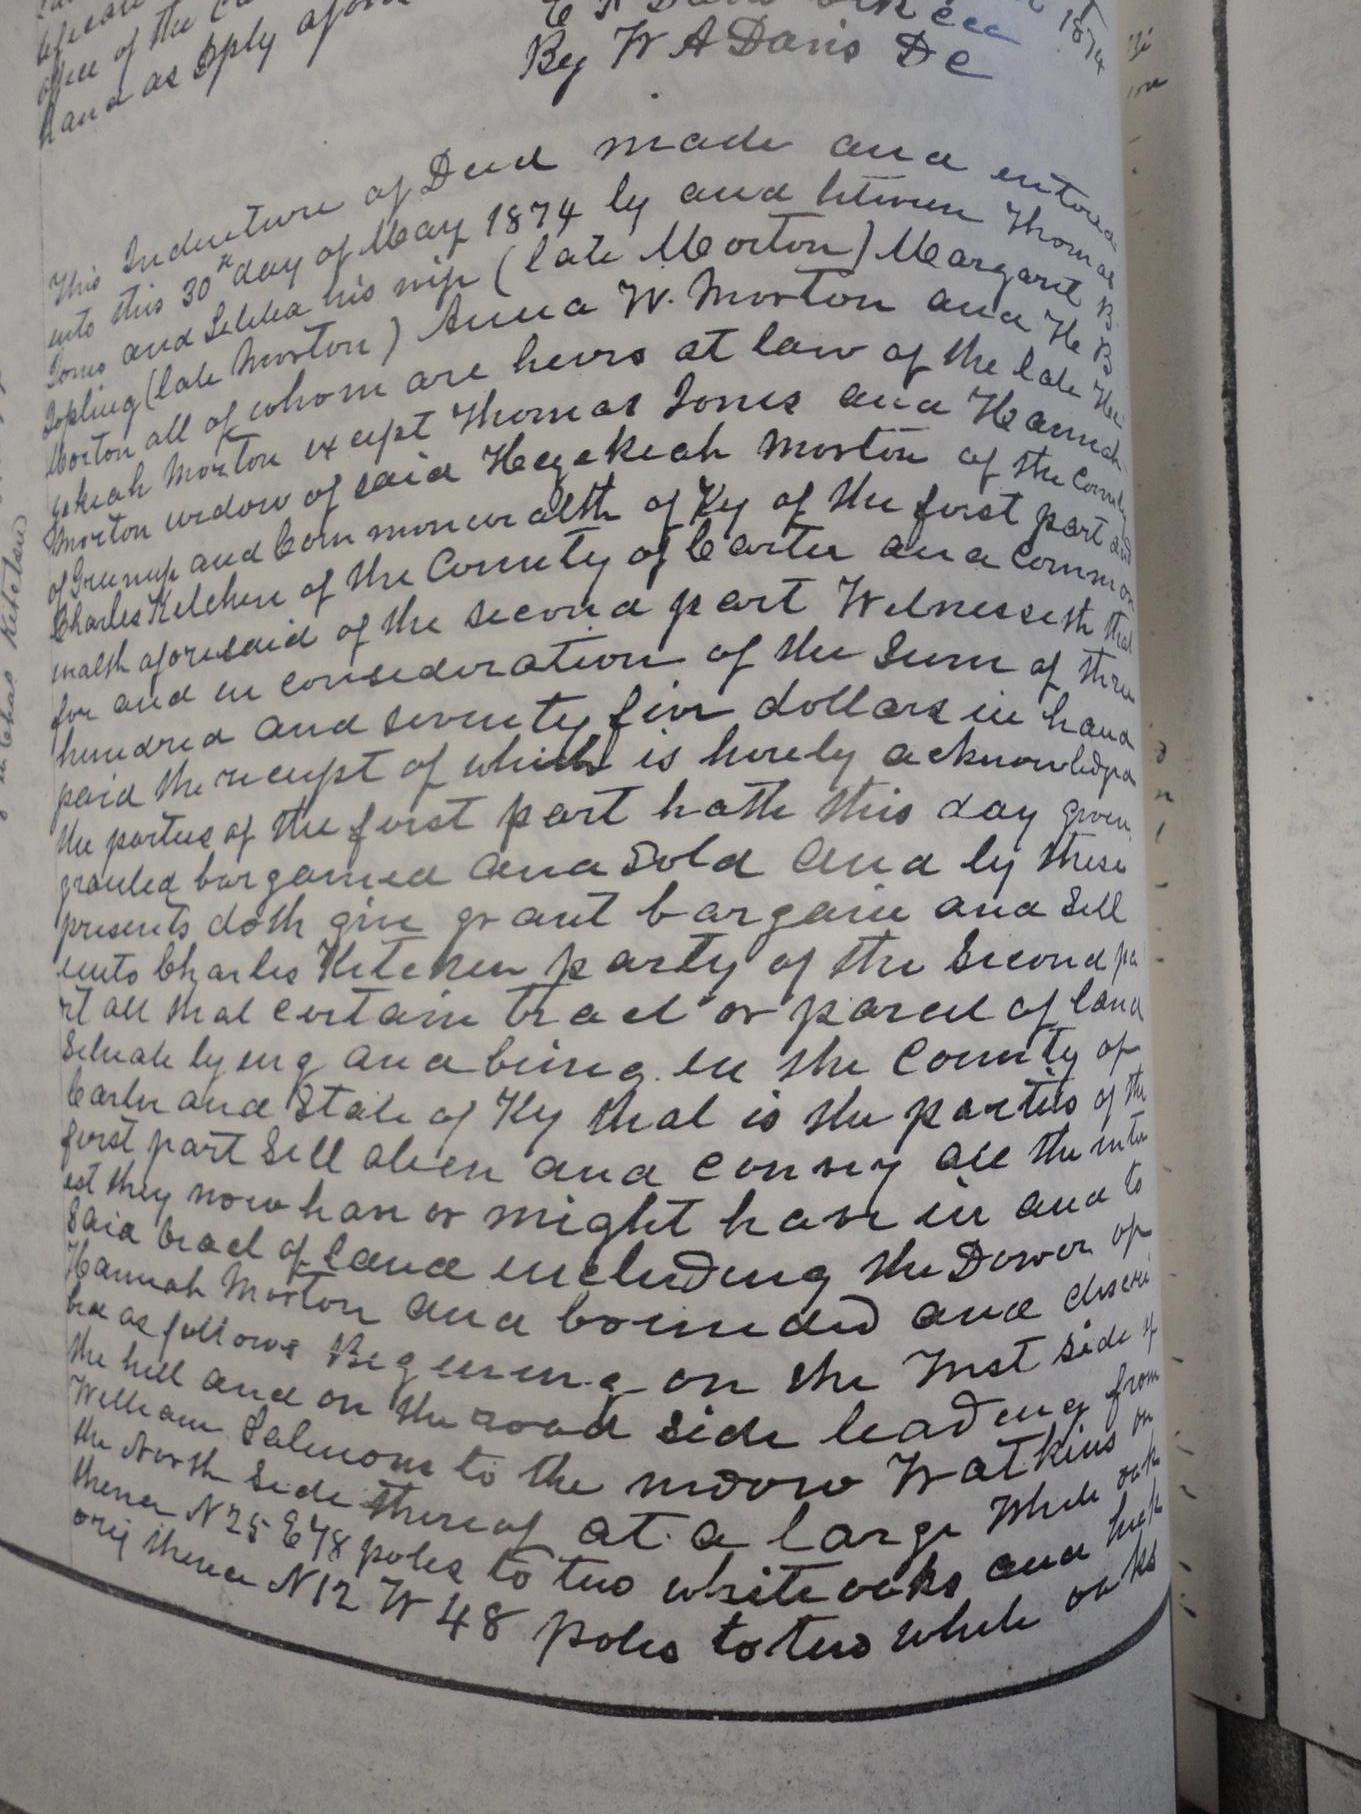 office of the
hand as Dply afore
1874
By W A Davis D C
This Indenture of Deed made and entered
into this 30th day of May 1874 by and between Thomas
Jones and his wife (late Morton) Margaret B
Jopling (late Morton) Anna W. Morton and He B
Morton all of whom are heirs at law of the late He
zekiah Morton except Thomas Jones and Hannah
Morton widow of said Hezekiah Morton of the County
of Greenup and Commonwealth of Ky of the first part and
Charles Kitchen of the County of Carter and Common
wealth aforesaid of the second part Witnesseth that
for and in consideration of the Sum of three
hundred and seventy five dollars in hand
paid the receipt of which is hereby acknowledged
the parties of the first part hath this day given
granted bargained and Sold and by these
presents doth give grant bargain and Sell
unto Charles Kitchen party of the Second pa
rt all that certain tract or parcel of land
Situate lying and being in the County of
Carter and State of Ky that is the parties of the
first part Sell alien and convey all the inter
est they now have or might have in and to
Said tract of land including the Dower of
Hannah Morton and bounded and descri
bed as follows Begining on the West side of
the hill and on the road side leading from
William Salmons to the widow Watkins on
the North Side thereof at a large White oak
thence N 25 E 78 poles to two white oaks and hick
ory thence N 12 W 48 poles to two white oaks
Chas Kitchen